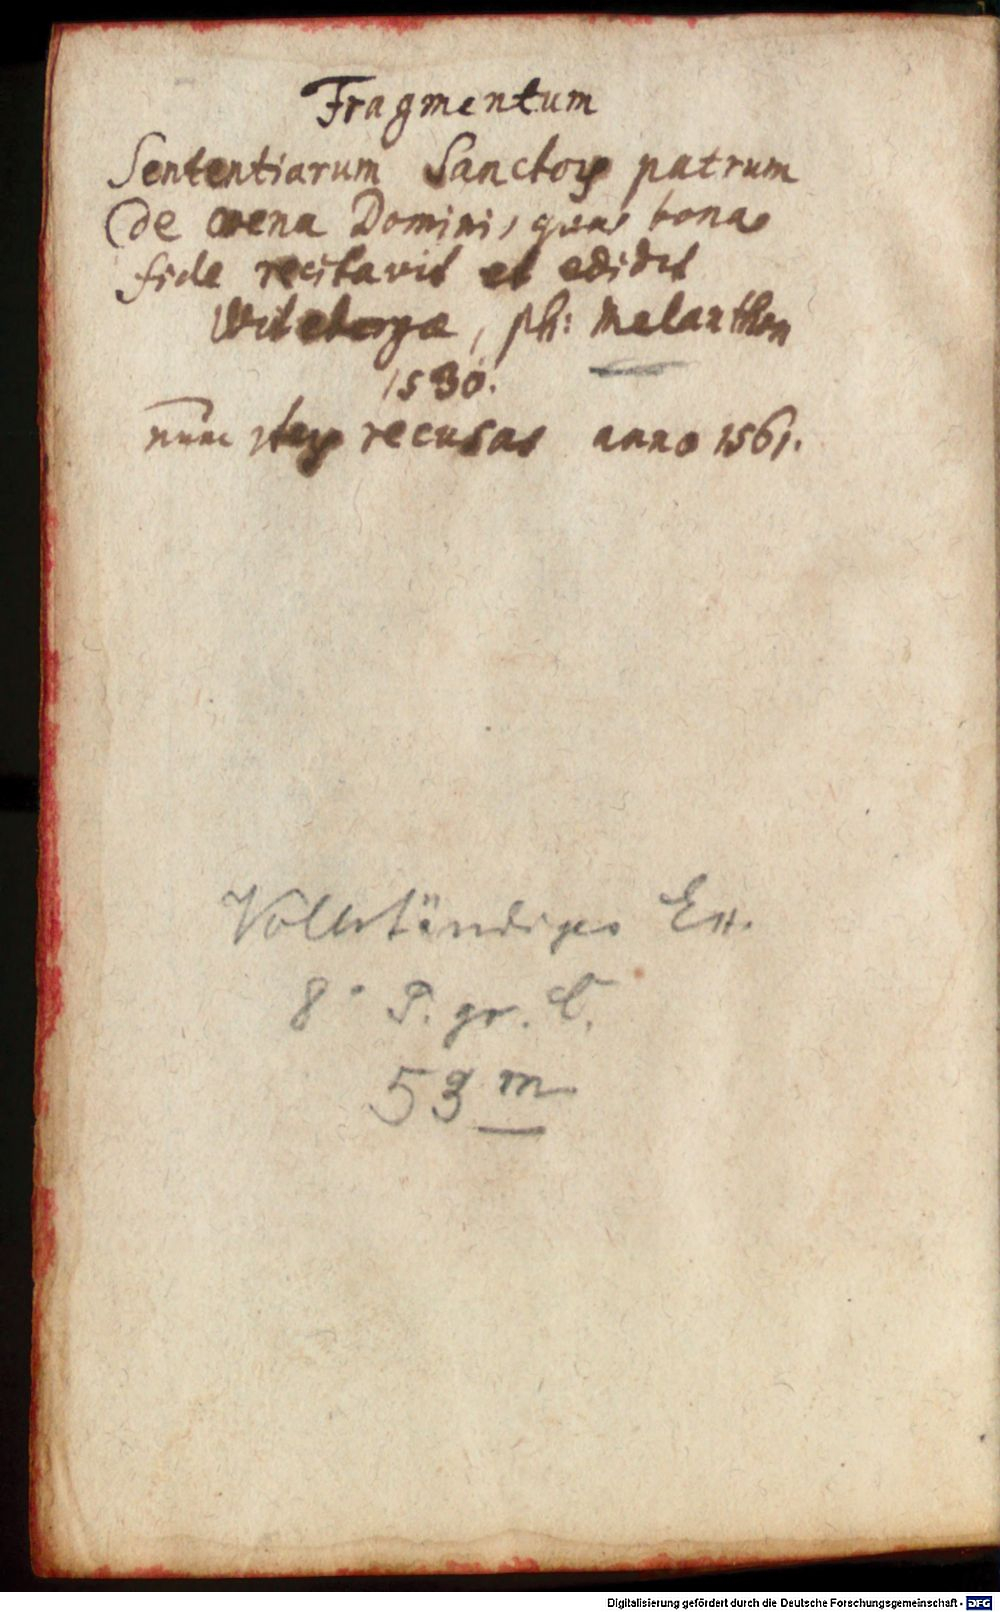 Fragmentum
Sententiarum Sanctoꝝ patrum
de coena Domini, quas bona
fide recitavit et edidit
Witebergae, ph: Melanthon
1530.
nunc recusas anno 1561.
Vollständiges Ex.
8° P. gr. C.
53 m
Digitalisierung gefördert durch die Deutsche Forschungsgemeinschaft - DFG